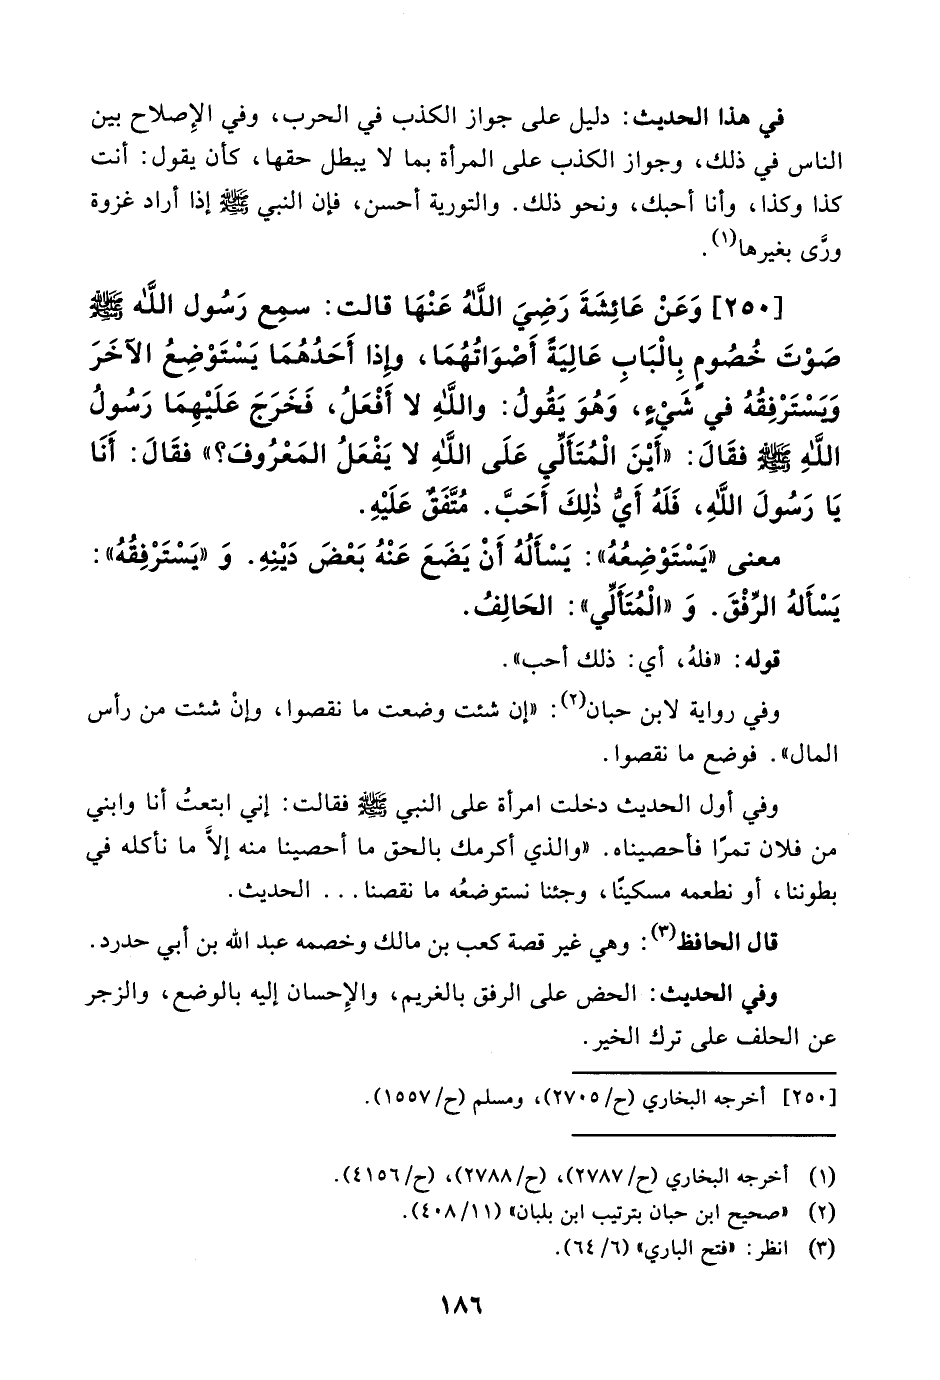 في هذا الحديث: دليل على جواز الكذب في الحرب، وفي الإِصلاح بين
الناس في ذلك، وجواز الكذب على المرأة بما لا يبطل حقها، كأن يقول: أنت
كذا وكذا، وأنا أحبك، ونحو ذلك. والتورية أحسن، فإن النبي ﷺ إذا أراد غزوة
ورَّى بغيرها(١).
[٢٥٠] وَعَنْ عَائِشَةَ رَضِيَ اللَّهُ عَنْهَا قالت: سمِع رَسُول اللَّه ﷺ
صَوْتَ خُصُومٍ بِالْبَابِ عَالِيَةً أَصْوَاتُهُمَا، وإِذا أَحَدُهُمَا يَسْتَوْضِعُ الآخَرَ
وَيَسْتَرْفِقُهُ في شَيْءٍ، وَهُوَ يَقُولُ: واللَّهِ لا أَفْعَلُ، فَخَرَجَ عَلَيْهِمَا رَسُولُ
اللَّهِ ﷺ فقَالَ: «أَيْنَ الْمُتَأَلِّي عَلَى اللَّهِ لا يَفْعَلُ المَعْرُوفَ؟» فقَالَ: أَنَا
يَا رَسُولَ اللَّهِ، فَلَهُ أَيُّ ذٰلِكَ أَحَبَّ. مُتَّفَقٌ عَلَيْهِ.
معنى «يَسْتَوْضِعُهُ»: يَسْأَلُهُ أَنْ يَضَعَ عَنْهُ بَعْضَ دَيْنِهِ. وَ «يَسْتَرْفِقُهُ»:
يَسْأَلهُ الرِّفْقَ. وَ «الْمُتَأَلِّي»: الحَالِفُ.
قوله: «فلهُ، أي: ذلك أحب».
وفي رواية لابن حبان(٢): «إن شئت وضعت ما نقصوا، وإنْ شئت من رأس
المال». فوضع ما نقصوا.
وفي أول الحديث دخلت امرأة على النبي ﷺ فقالت: إني ابتعتُ أنا وابني
من فلان تمرًا فأحصيناه. «والذي أكرمك بالحق ما أحصينا منه إلاَّ ما نأكله في
بطوننا، أو نطعمه مسكينًا، وجئنا نستوضعُه ما نقصنا... الحديث.
قال الحافظ(٣): وهي غير قصة كعب بن مالك وخصمه عبد الله بن أبي حدرد.
وفي الحديث: الحض على الرفق بالغريم، والإِحسان إليه بالوضع، والزجر
عن الحلف على ترك الخير.
[٢٥٠] أخرجه البخاري (ح/٢٧٠٥)، ومسلم (ح/١٥٥٧).
(١) أخرجه البخاري (ح/٢٧٨٧)، (ح/٢٧٨٨)، (ح/٤١٥٦).
(٢) «صحيح ابن حبان بترتيب ابن بلبان» (٤٠٨/١١).
(٣) انظر: «فتح الباري» (٦٤/٦).
١٨٦